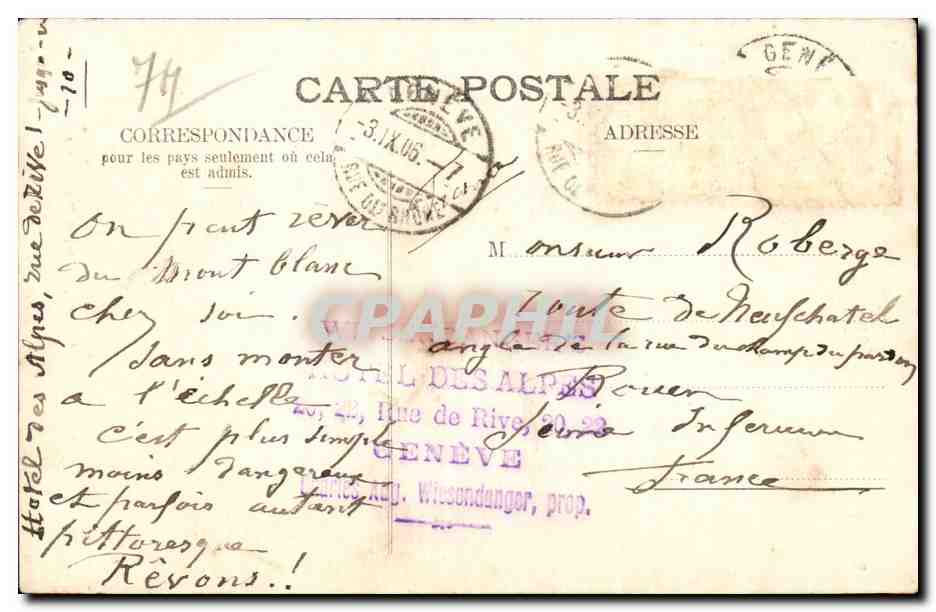 74
CARTE POSTALE
CORRESPONDANCE
pour les pays seulement où cela
est admis.
ADRESSE
GENÈVE
-3.IX.06.-7
RUE DU RHÔNE
GENÈ
RUE DU
Hotel des Alpes, rue de Rive
-10-
On peut rêver
du Mont blanc
chez soi.
Sans monter
a l'échelle
c'est plus simple
moins dangereux
et parfois autant
pittoresque
Rêvons.!
Monsieur Roberge
route de Neufchatel
angle de la rue du champ du pardon
Rouen
Seine Inferieure
France
HOTEL DES ALPES
20, 22, Rue de Rive, 20, 22
GENÈVE
Charles Aug. Wiesendanger, prop.
CPAPHIL